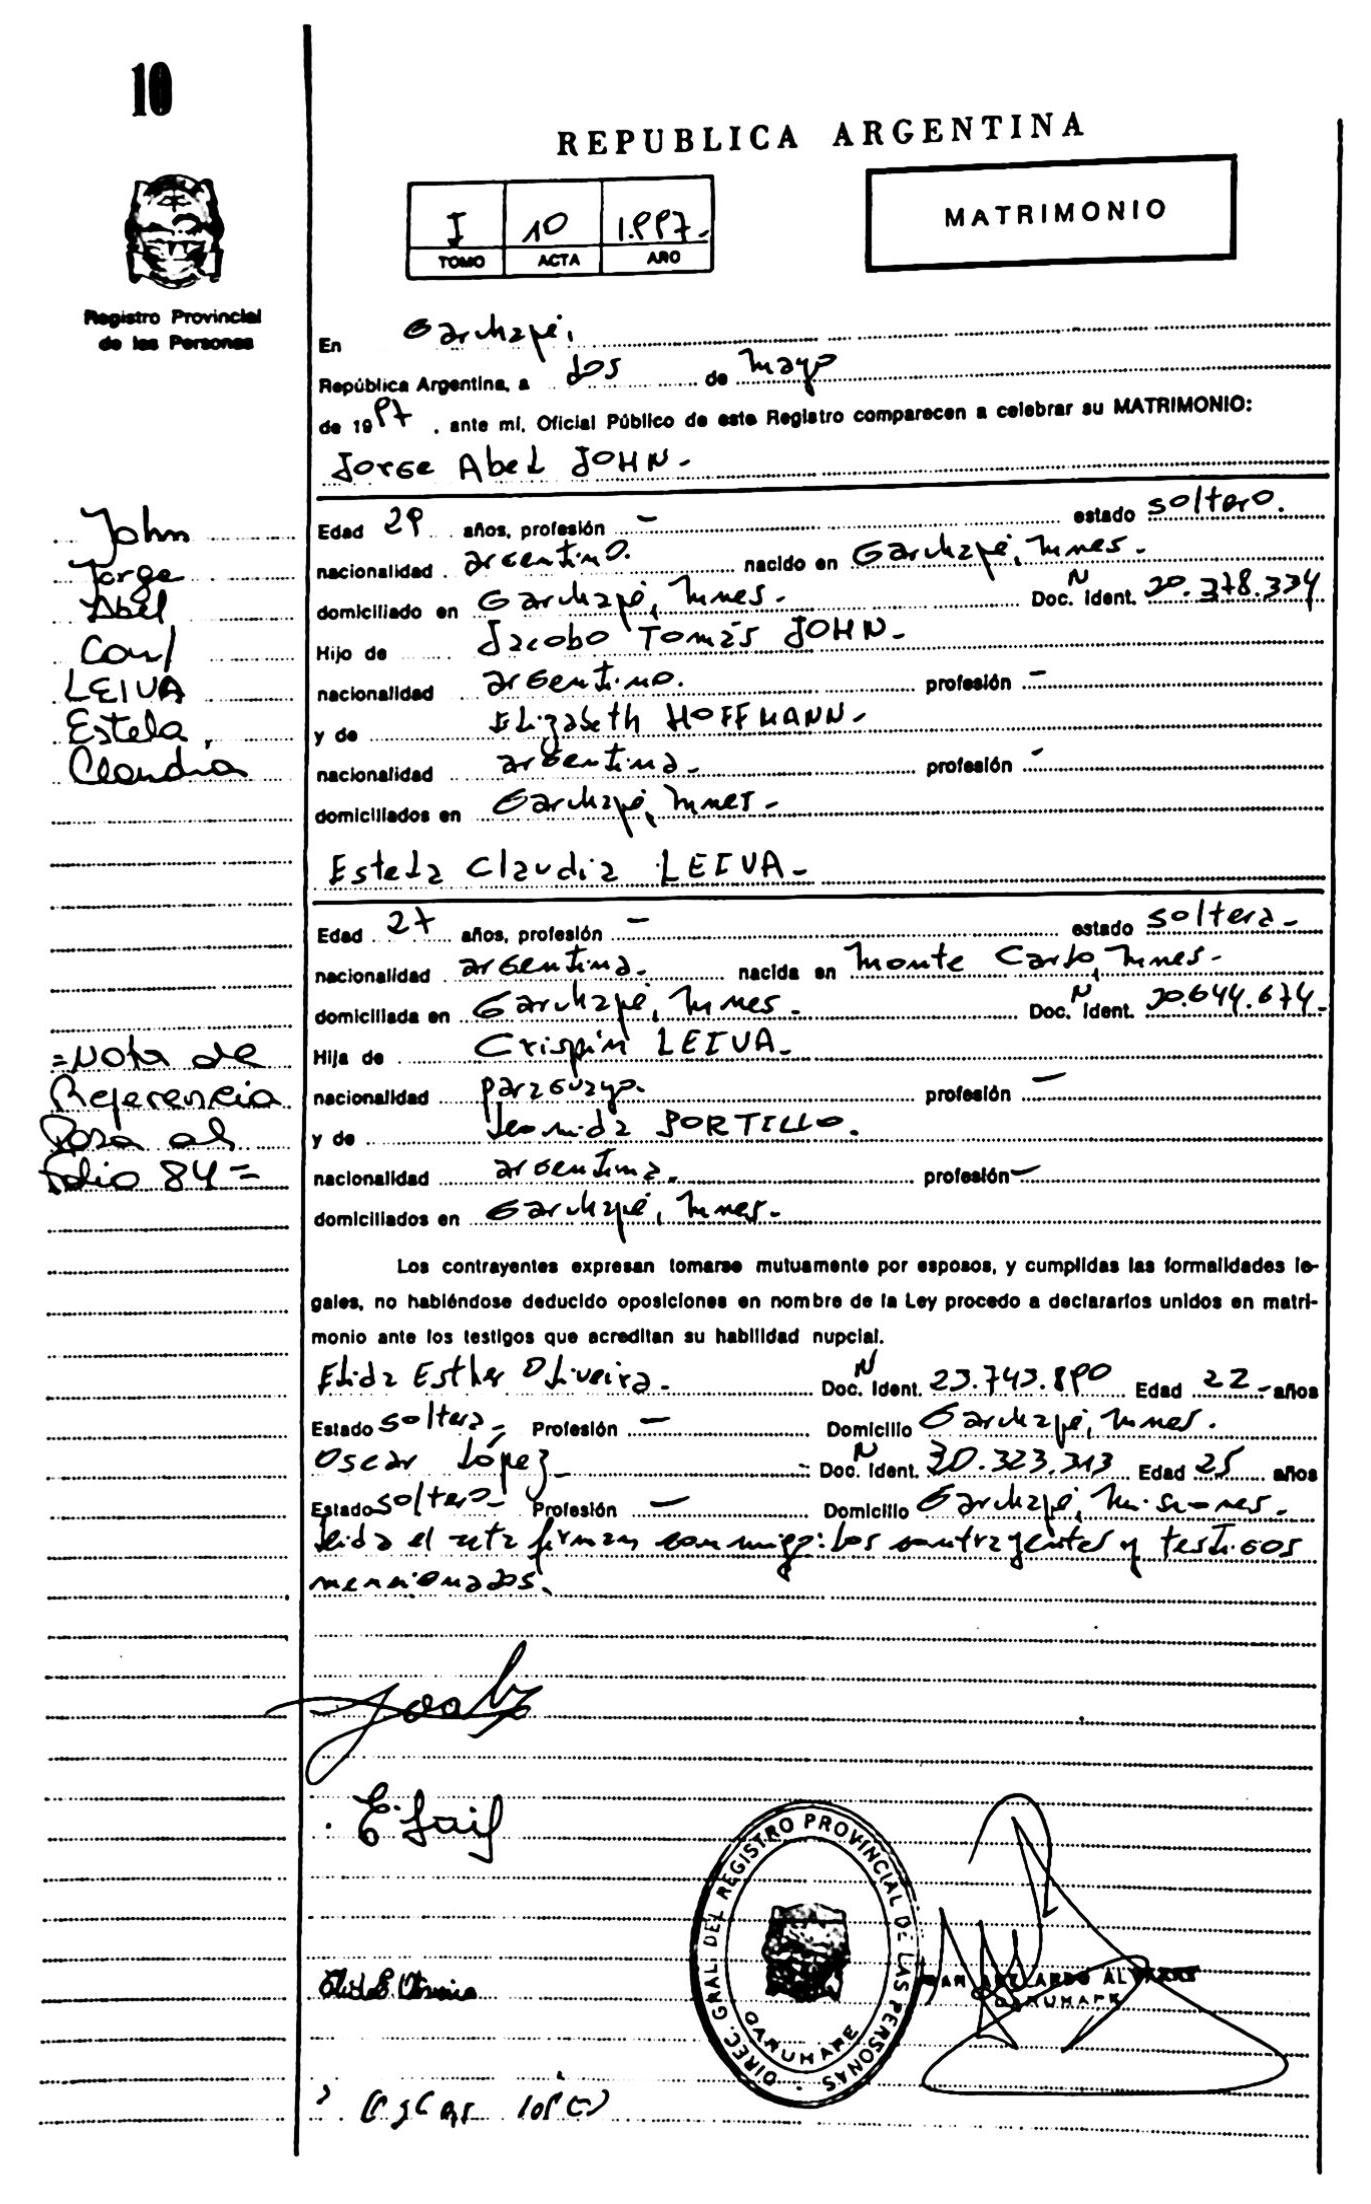 10
REPUBLICA ARGENTINA
MATRIMONIO
I 10 1.997.-
TOMO ACTA AÑO
Registro Provincial
de las Personas
En Garuhapé,
República Argentina, a dos de mayo
de 1997, ante mí, Oficial Público de este Registro comparecen a celebrar su MATRIMONIO:
Jorge Abel JOHN.-
John
Jorge
Abel
Con/
LEIVA
Estela,
Claudia
Edad 29 años, profesión - estado soltero.
nacionalidad argentino. nacido en Garuhapé, Mnes.-
domiciliado en Garuhapé, Mnes.- Doc. N Ident. 20.378.334
Hijo de Jacobo Tomás JOHN.-
nacionalidad argentino. profesión -
y de Elizabeth HOFFMANN.-
nacionalidad argentina.- profesión -
domiciliados en Garuhapé, Mnes.-
Estela Claudia LEIVA.-
Edad 27 años, profesión - estado soltera.-
nacionalidad argentina. nacida en Monte Carlo, Mnes.-
domiciliada en Garuhapé, Mnes. Doc. N Ident. 20.644.674.-
Hija de Crispín LEIVA.-
nacionalidad paraguayo. profesión -
y de Leonida PORTILLO.
nacionalidad argentina. profesión -
domiciliados en Garuhapé, Mnes.-
=Nota de
Referencia
Pasa al
Folio 84=
Los contrayentes expresan tomarse mutuamente por esposos, y cumplidas las formalidades le-
gales, no habiéndose deducido oposiciones en nombre de la Ley procedo a declararlos unidos en matri-
monio ante los testigos que acreditan su habilidad nupcial.
Elida Esther Oliveira.- Doc. N Ident. 23.743.890 Edad 22.- años
Estado soltera.- Profesión - Domicilio Garuhapé, Mnes.
Oscar López Doc. N Ident. 30.323.313 Edad 25 años
Estado soltero- Profesión - Domicilio Garuhapé, Misiones.-
Leida el acta firman conmigo: los contrayentes y testigos
mencionados.
DIREC. GRAL. DEL REGISTRO PROVINCIAL DE LAS PERSONAS
GARUHAPE
GARUHAPE